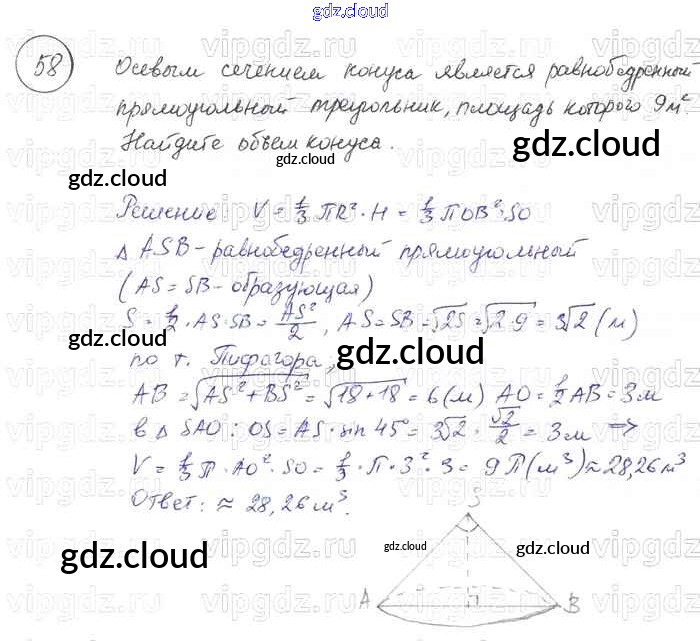 gdz.cloud
58 Осевым сечением конуса является равнобедренный
прямоугольный треугольник, площадь которого 9 м²
Найдите объем конуса.
gdz.cloud
gdz.cloud
gdz.cloud
Решение: V = 1/3 πR²·H = 1/3 π OB²·SO
Δ ASB - равнобедренный прямоугольный
(AS = SB - образующая)
S = 1/2 · AS · SB = AS²/2, AS = SB = √2S = √2·9 = 3√2 (м)
gdz.cloud
по т. Пифагора;
gdz.cloud
AB = √AS² + BS² = √18 + 18 = 6 (м) AO = 1/2 AB = 3 м
в Δ SAO: OS = AS · sin 45° = 3√2 · √2/2 = 3 м ⇒
V = 1/3 π · AO² · SO = 1/3 · π · 3² · 3 = 9π (м³) ≈ 28,26 м³
Ответ: ≈ 28,26 м³.
S
gdz.cloud
gdz.cloud
gdz.cloud
A B